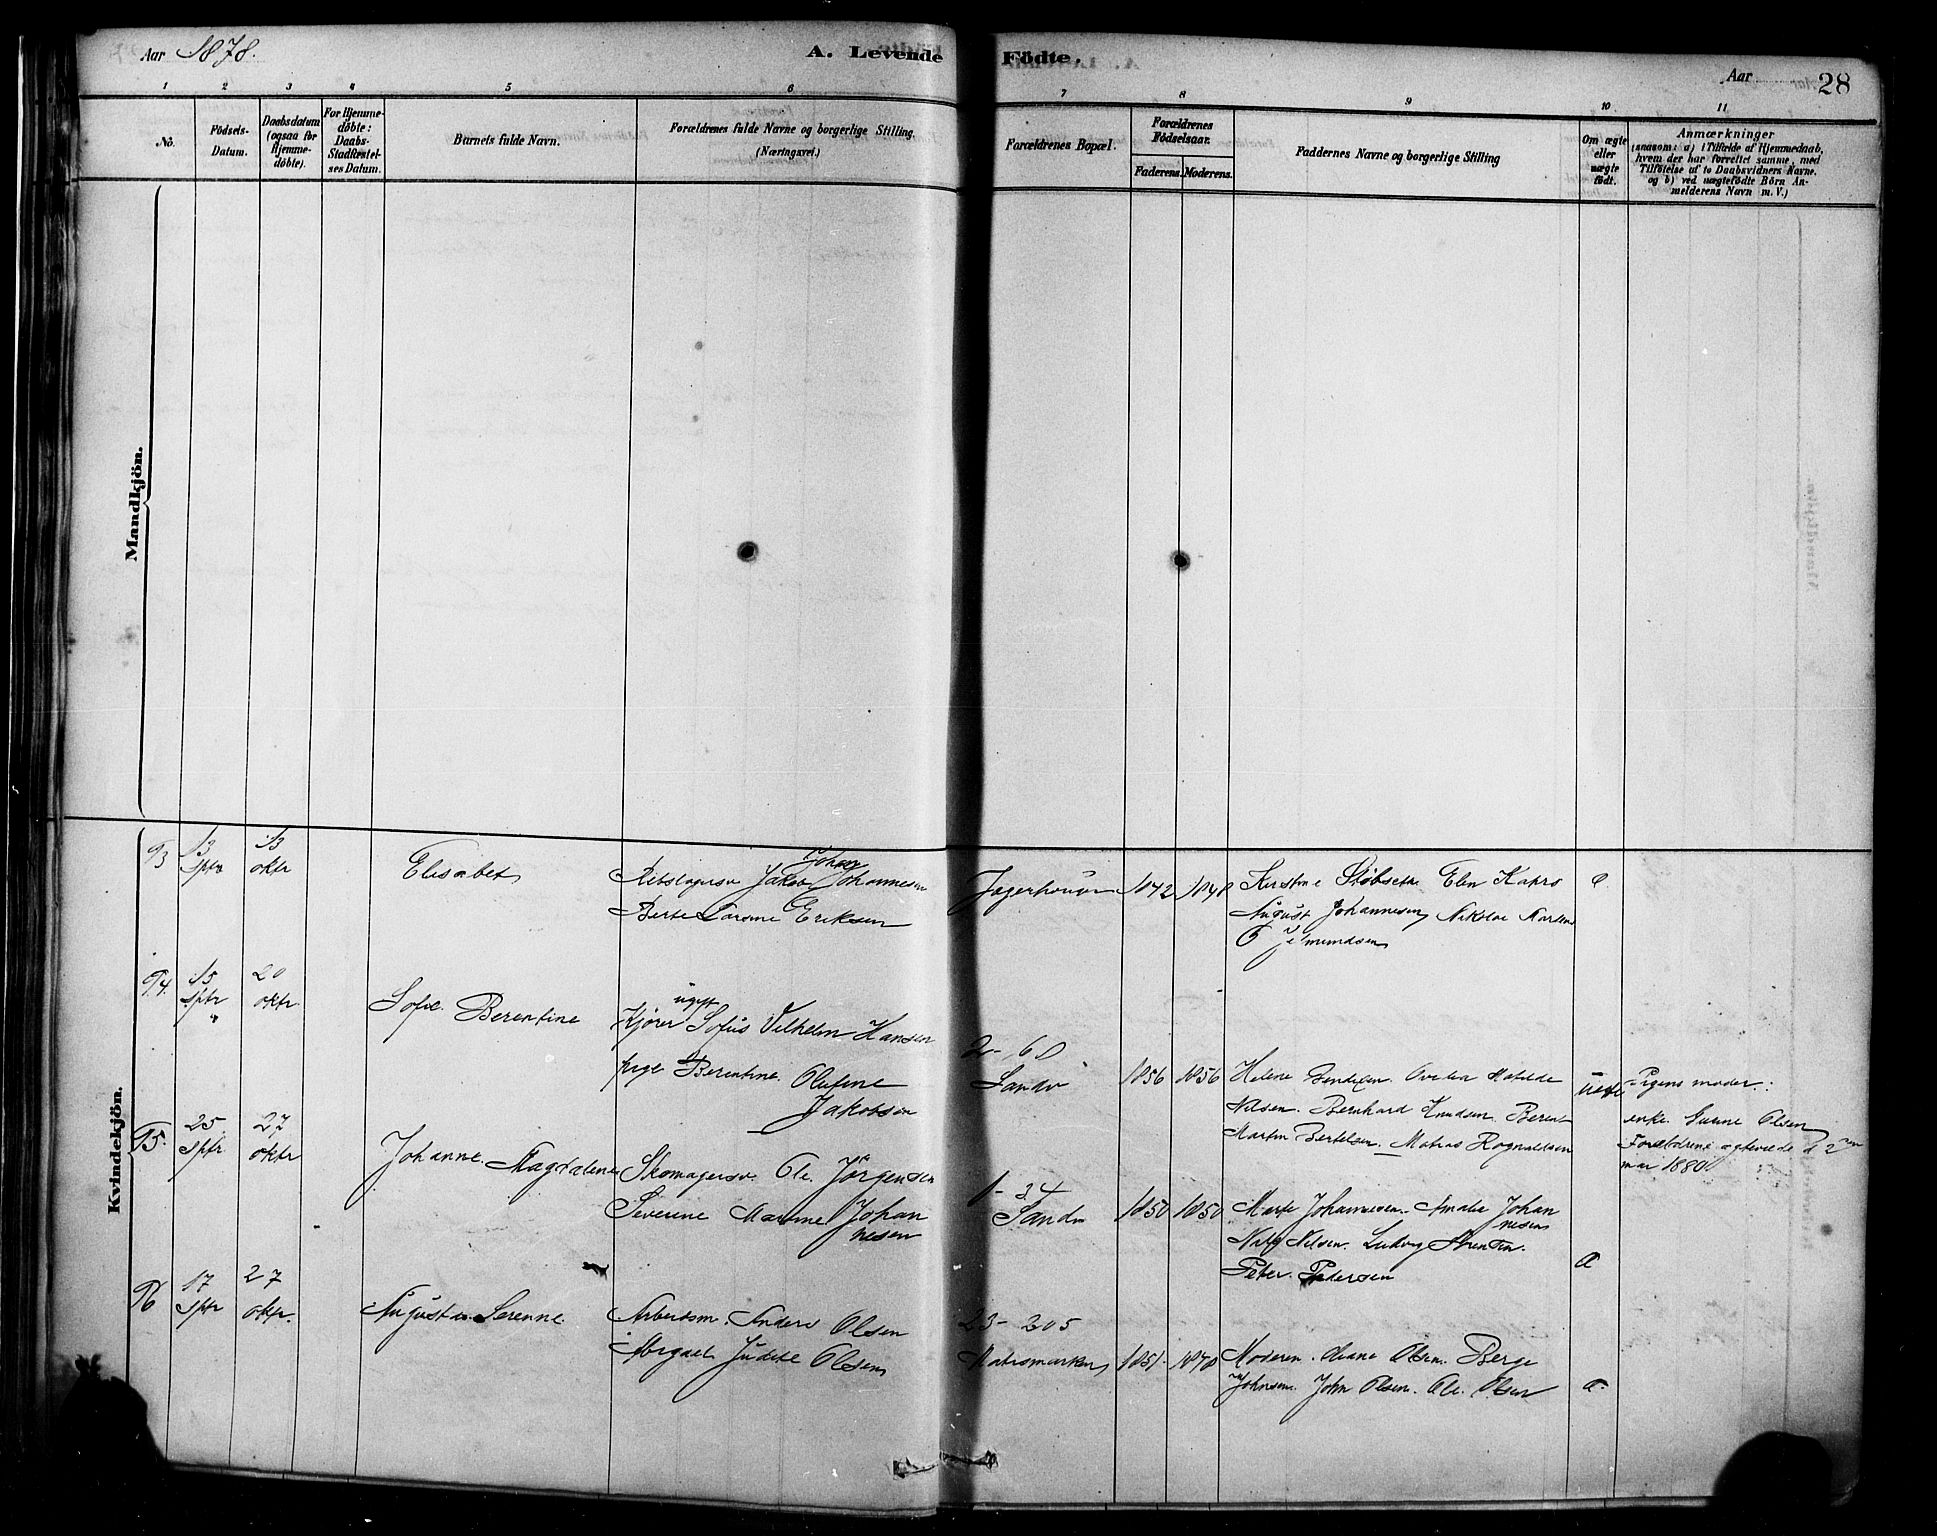 Aar 1878.
A. Levende Födte.
Aar 28
1 2 3 4 5 6 7 8 9 10 11
No.
Födsels-
Datum.
Daabsdatum
(ogsaa for
Hjemme-
döbte).
For Hjemme-
döbte:
Daabs-
Stadfæstel-
ses Datum.
Barnets fulde Navn.
Forældrenes fulde Navne og borgerlige Stilling.
(Næringsvei.)
Forældrenes Bopæl.
Forældrenes
Födselsaar.
Faderens. Moderens.
Faddernes Navne og borgerlige Stilling
Om ægte
eller
uægte
födt.
Anmærkninger
(saasom: a) i Tilfælde af Hjemmedaab,
hvem der har forrettet samme, med
Tilföielse af to Daabsvidners Navne.
og b) ved uægtefödte Börn An-
melderens Navn m. V.)
Mandkjön.
Kvindekjön.
93
13
Sptr
13
oktr
Elisabet
Johan
Rebslagersv Jakob Johannesen
Berte Larsine Eriksen
1842 1848
August Johannesen Nikolai
94.
15
Sptr
20
oktr.
Sofie Berentine
ugift
Kjörer Sofus Vilhelm Hansen
pige Berentine Olufine
Jakobsen
2-60
Sandv
1856 1856
Helene Bendixen
Nilsen. Bernhard Knudsen Berent
Martin Bertelsen. Matias Rognaldsen
uekte
Pigens moder:
enke Gunne Olsen
Forældrene egteviede d 2den
mar 1880
95.
25
Sptr
27
oktr
Johanne Magdalene
Skomagersv. Ole Jörgensen
Severine Martine Johan
nesen
1-34
Sandv
1850 1850
Marte Johannesen. Amalie Johan
nesen
Nils Nilsen. Ludvig
Peter Pedersen
96
17
Sptr
27
oktr.
Serenne
Arbeidsm. Anders Olsen
Abigael Judite Olsen
23-205
1851. 1848
Moderen. Olsen. Berge
Johnsen. John Olsen. Ole Olsen